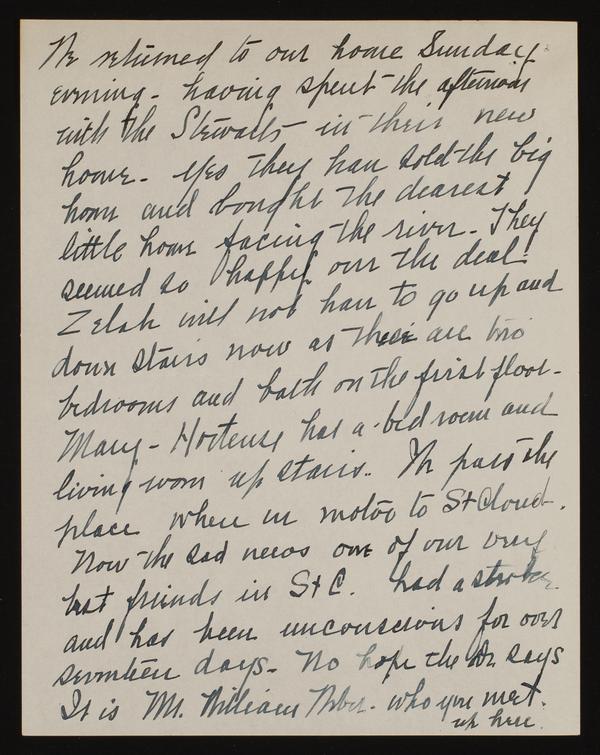 We returned to our home Sunday
evening - having spent the afternoon
with the Stewarts in their new
home - Yes they have sold the big
home and bought the dearest
little home facing the river - They
seemed so happy over the deal -
Zelah will not have to go up and
down stairs now as there are two
bedrooms and bath on the first floor -
Mary - Hortense has a bed room and
living room up stairs. We pass the
place when we motor to St Cloud.
Now the sad news one of our very
best friends in St C. had a stroke
and has been unconscious for over
seventeen days - No hope the Dr. says
It is Mr. William - who you met
up here.